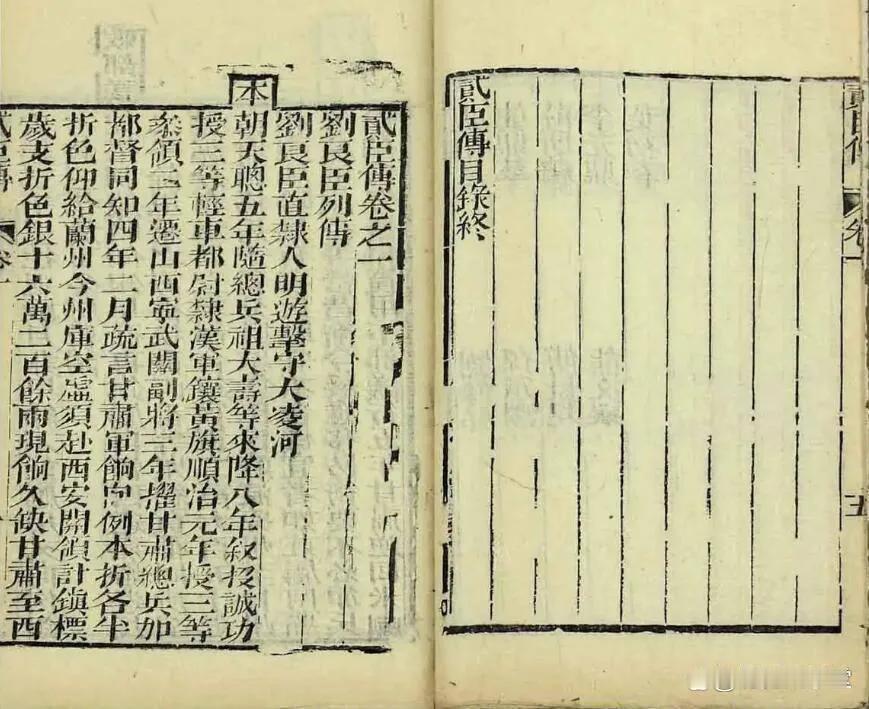 貳臣傳 卷一 五
貳臣傳目錄終
貳臣傳卷之一
劉良臣列傳
劉良臣直隸人明遊擊守大凌河
本朝天聰五年隨總兵祖大壽等來降八年敘投誠功
授三等輕車都尉隸漢軍鑲黃旗順治元年授三等
叅領二年遷山西寧武關副將三年擢甘肅總兵加
都督同知四年二月疏言甘肅軍餉向例本折各半
折色仰給蘭州今州庫空虛須赴西安開領計鎮標
歲支折色銀十六萬二百餘兩現餉久缺甘肅至西
貳臣傳 卷一